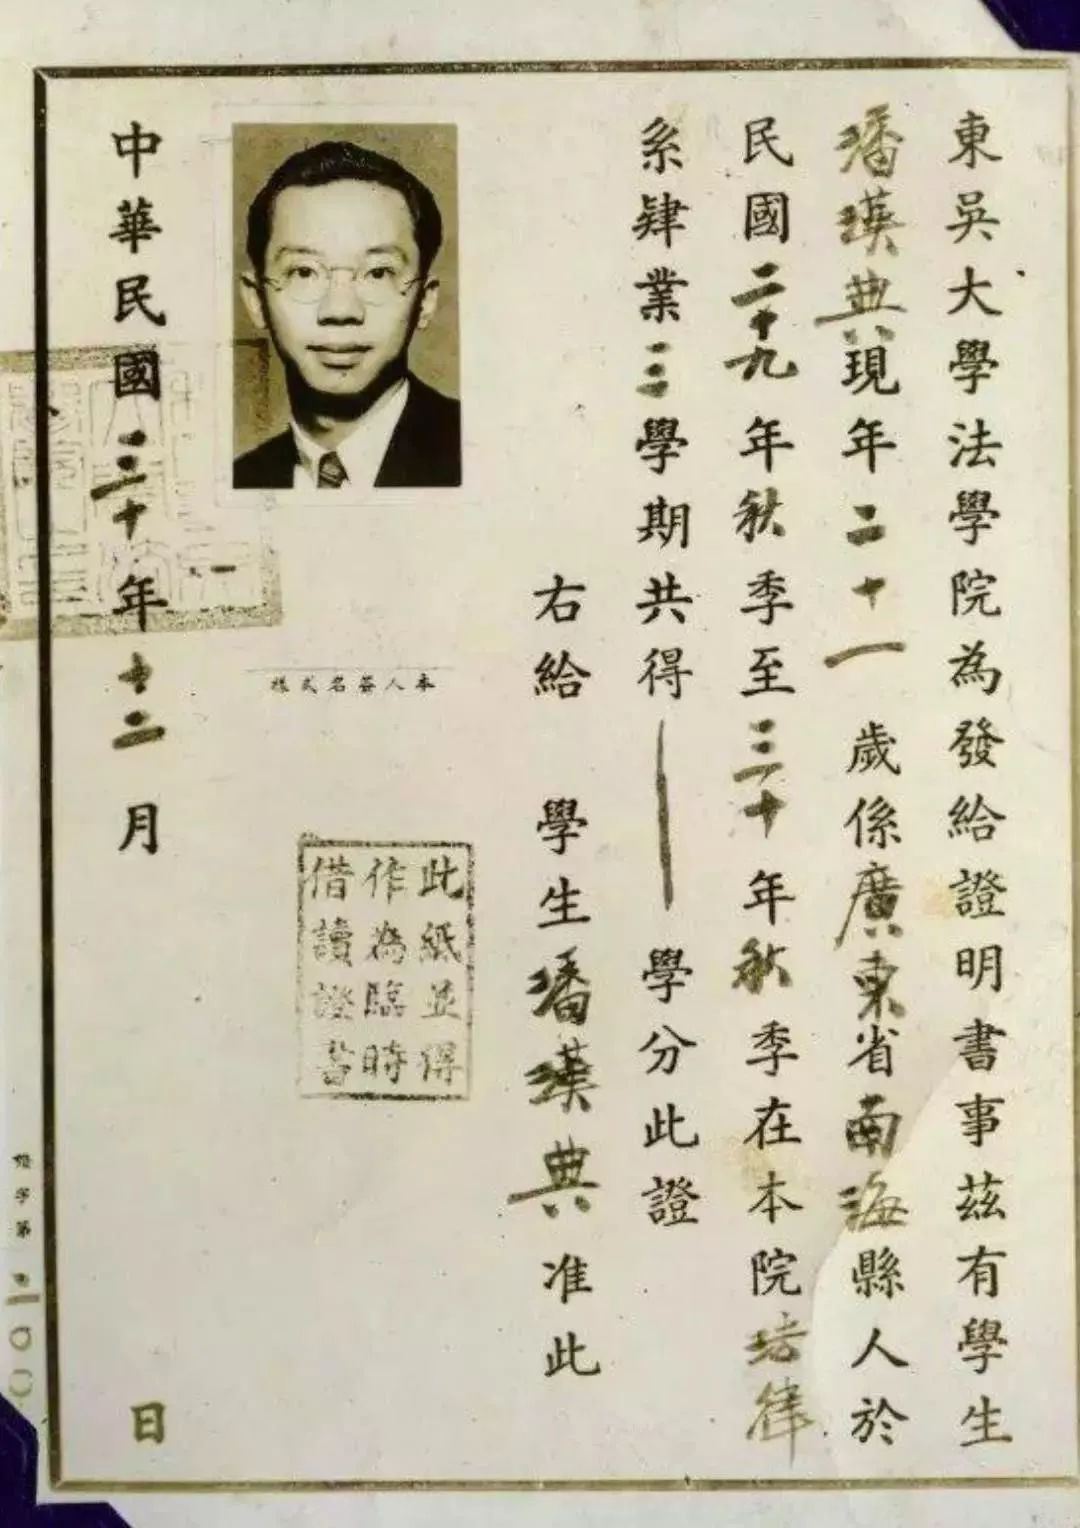 東吳大學法學院為發給證明書事茲有學生
潘瑛典現年二十一歲係廣東省南海縣人於
民國二十九年秋季至三十年秋季在本院法律
系肄業三學期共得 學分此證
右給 學生潘瑛典准此
本人簽名式樣
此紙並得
作為臨時
借讀證書
中華民國三十年十二月 日